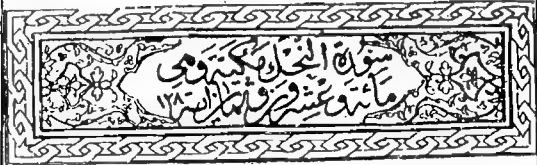 سُورَةُ النَّحْلِ مَكِّيَّةٌ وَهِيَ
مِائَةٌ وَعِشْرُونَ وَثَمَانِ آيَة ١٢٨